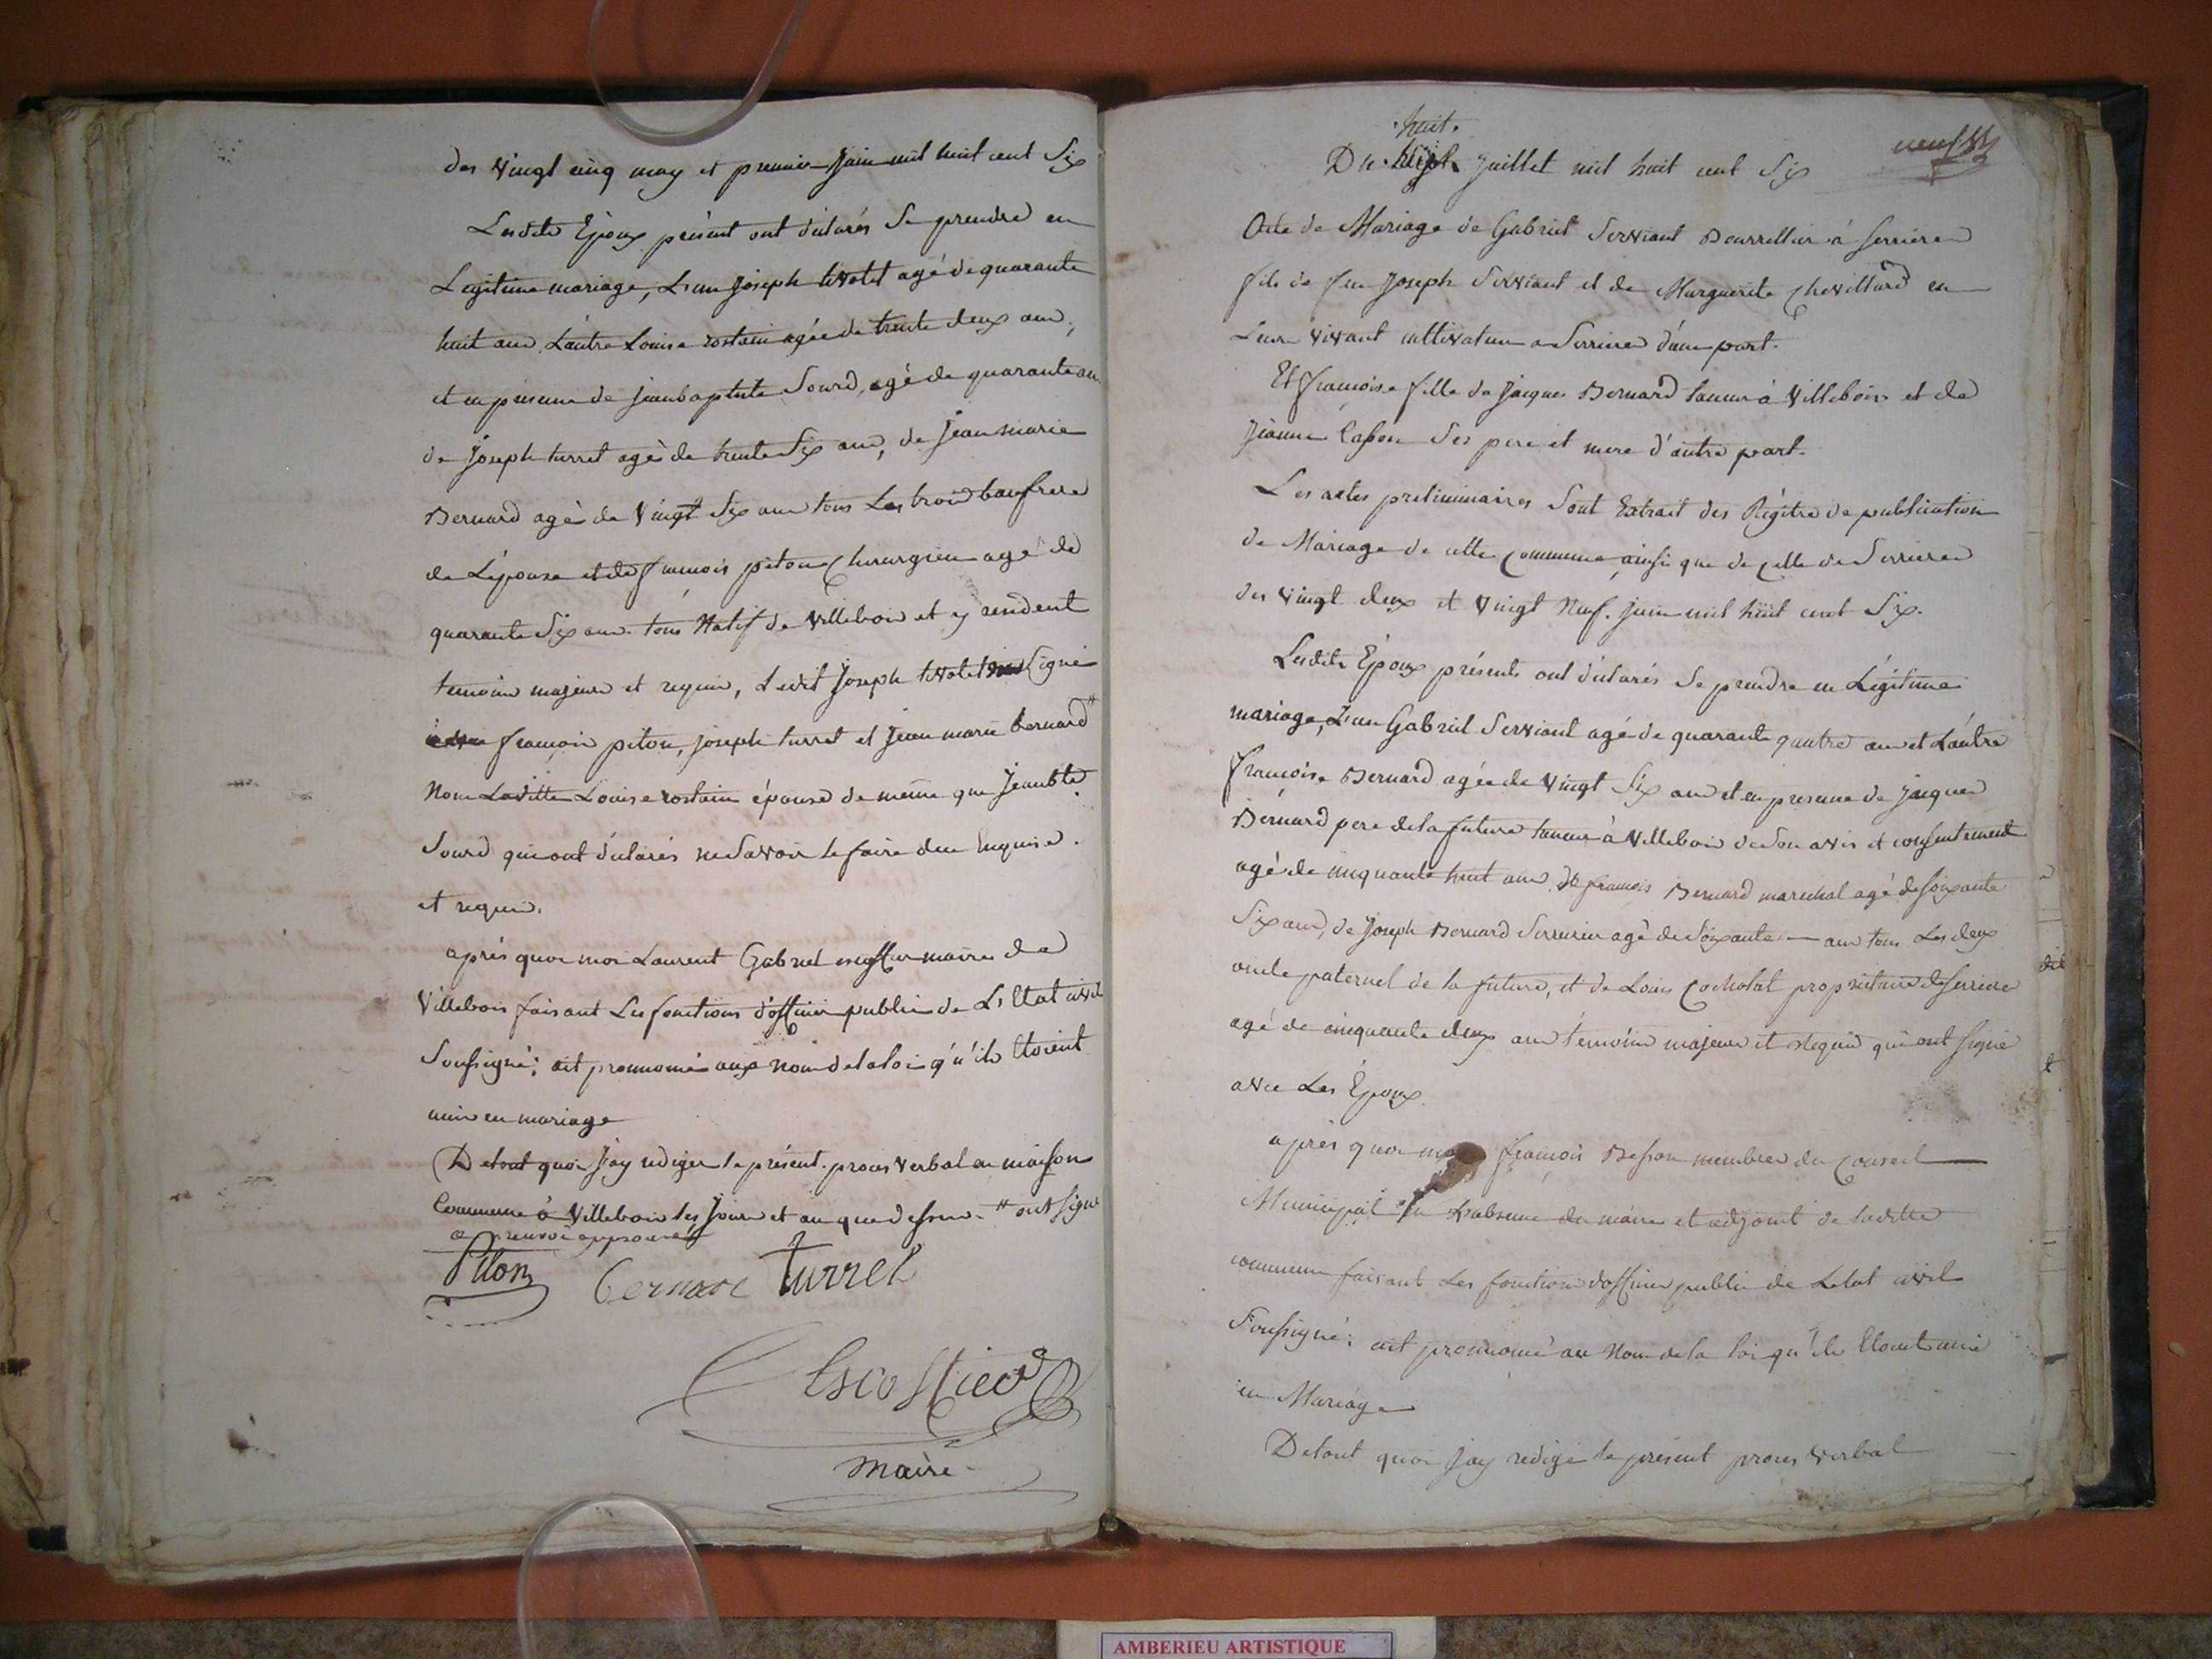 des vingt cinq may et premier juin mil huit cent Six
Lesdits Epoux présent ont déclarés Se prendre en
Légitime mariage, L'un Joseph agé de quarante
huit ans, L'autre Louise rostain agée de trente deux ans,
et en presence de jeanbaptiste Sourd, agé de quarante ans
de Joseph turret agé de trente Six ans, de Jean marie
Bernard agé de Vingt Six ans tous Les trois beaufrere
de L'épouse et de françois piton Chirurgien agé de
quarante Six ans tous Natif de villebois et y resident
temoins majeurs et requis, Ledit Joseph Signé
françois piton, joseph turret et Jean marie bernard"
Non Laditte Louise rostain épouse de même que Jeanbte
Sourd qui ont déclarés ne Savoir le faire deu enquis
et requis.
après quoi moi Laurent Gabriel maire de
Villebois faisant Les fonctions d'officier public de L'Etat civil
Soussigné; ait prononcé aux nom de la loi qu'ils Etoient
unis en mariage
De tout quoi J'ay rediger le présent procès verbal en maison
Commune à Villebois les jour et an que dessus. " ont signé
renvoi approuvé
Piton Bernard turret
Escoffier
maire
huit.
Du Juillet mil huit cent Six
neuf
Acte de Mariage de Gabriel Serviant Bourrellier à serrieres
fils de feu Joseph Serviant et de Marguerite Chevillard en
Leurs vivant cultivateurs a Serrieres d'une part.
Et françoise fille de Jacques Bernard tanneur à Villebois et de
Jeanne Ses pere et mere d'autre part.
Les actes preliminaires Sont Extrait des Régitre de publication
de Mariage de cette Commune ainsi que de celle de Serrieres
des vingt deux et Vingt Neuf. juin mil huit cent Six.
Lesdits Epoux présents ont déclarés Se prendre en Légitime
mariage, L'un Gabriel Serviant agé de quarante quatre ans et L'autre
françoise Bernard agée de vingt Six ans et en presence de jaques
Bernard pere de la future tanneur à Villebois de Son avis et consentement
agé de cinquante huit ans, De françois Bernard marechal agé de soixante
Six ans, de Joseph Bernard Serrurier agé de Soixante — ans tous Les deux
oncle paternel de la future, et de Louis Cocholat proprietaire de serrieres
agé de cinquante deux ans temoins majeurs et requis qui ont signé
avec Les Epoux
après quoi moi françois Besson membres du Conseil
Municipal En L'absence du maire et adjoint de laditte
commune faisant Les fonctions d'officier public de Letat civil
Soussigné; ait prononcé au Nom de la loi qu'ils Etoient unis
en Mariage
De tout quoi j'ay redigé le présent procès verbal
AMBERIEU ARTISTIQUE